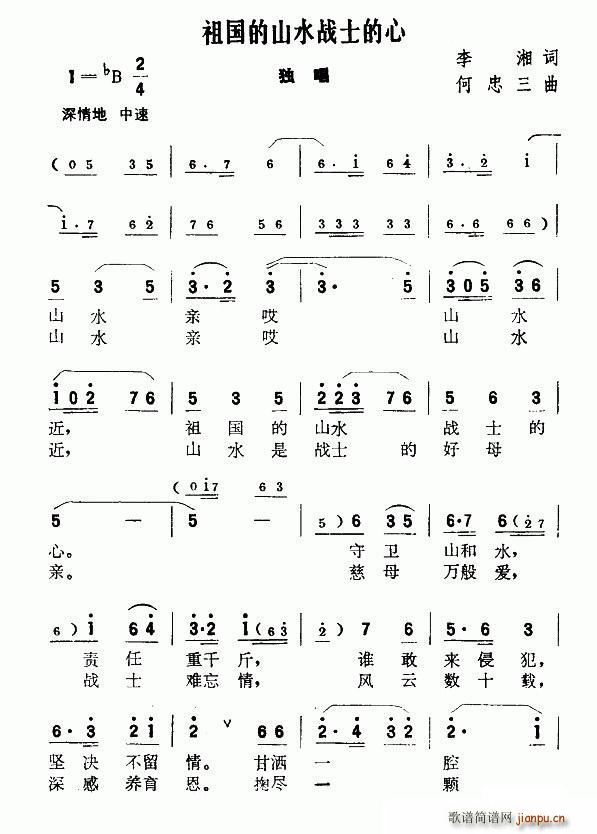 祖国的山水战士的心
李湘词
1=♭B 2/4
独唱
何忠三曲
深情地 中速
(0 5 3 5 | 6·7 6 | 6·i 6 4 | 3·2 i |
i·7 6 2 | 7 6 5 6 | 3 3 3 3 3 | 6·6 6 6) |
5 3 5 | 3·2 3 | 3· 5 | 3 0 5 3 6 |
山水亲哎山水
山水亲哎山水
1 0 2 7 6 | 5 3 5 | 2 2 3 7 6 | 5 6 3 |
近,祖国的山水战士的
近,山水是战士的好母
(0 i 7 6 3
5 — | 5 — | 5) 6 3 5 | 6·7 6 (2 7 |
心。守卫山和水,
亲。慈母万般爱,
6) i 6 4 | 3·2 i (6 3 | 2) 7 6 | 5·6 3 |
责任重千斤,谁敢来侵犯,
战士难忘情,风云数十载,
6·3 2 i | 2 ∨ 6 6 | 2·4 3 2 | 2· i |
坚决不留情。甘洒一腔
深感养育恩。掬尽一颗
歌谱简谱网
jianpu.cn